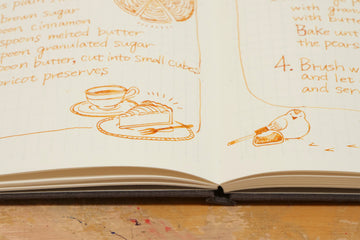 s plain
brown sugar
spoon cinnamon
spoons melted butter
spoon granulated sugar
poon butter, cut into small cubes
pricot preserves
with gran
with butt
Bake unt
the pears
4. Brush w
and let
and ser